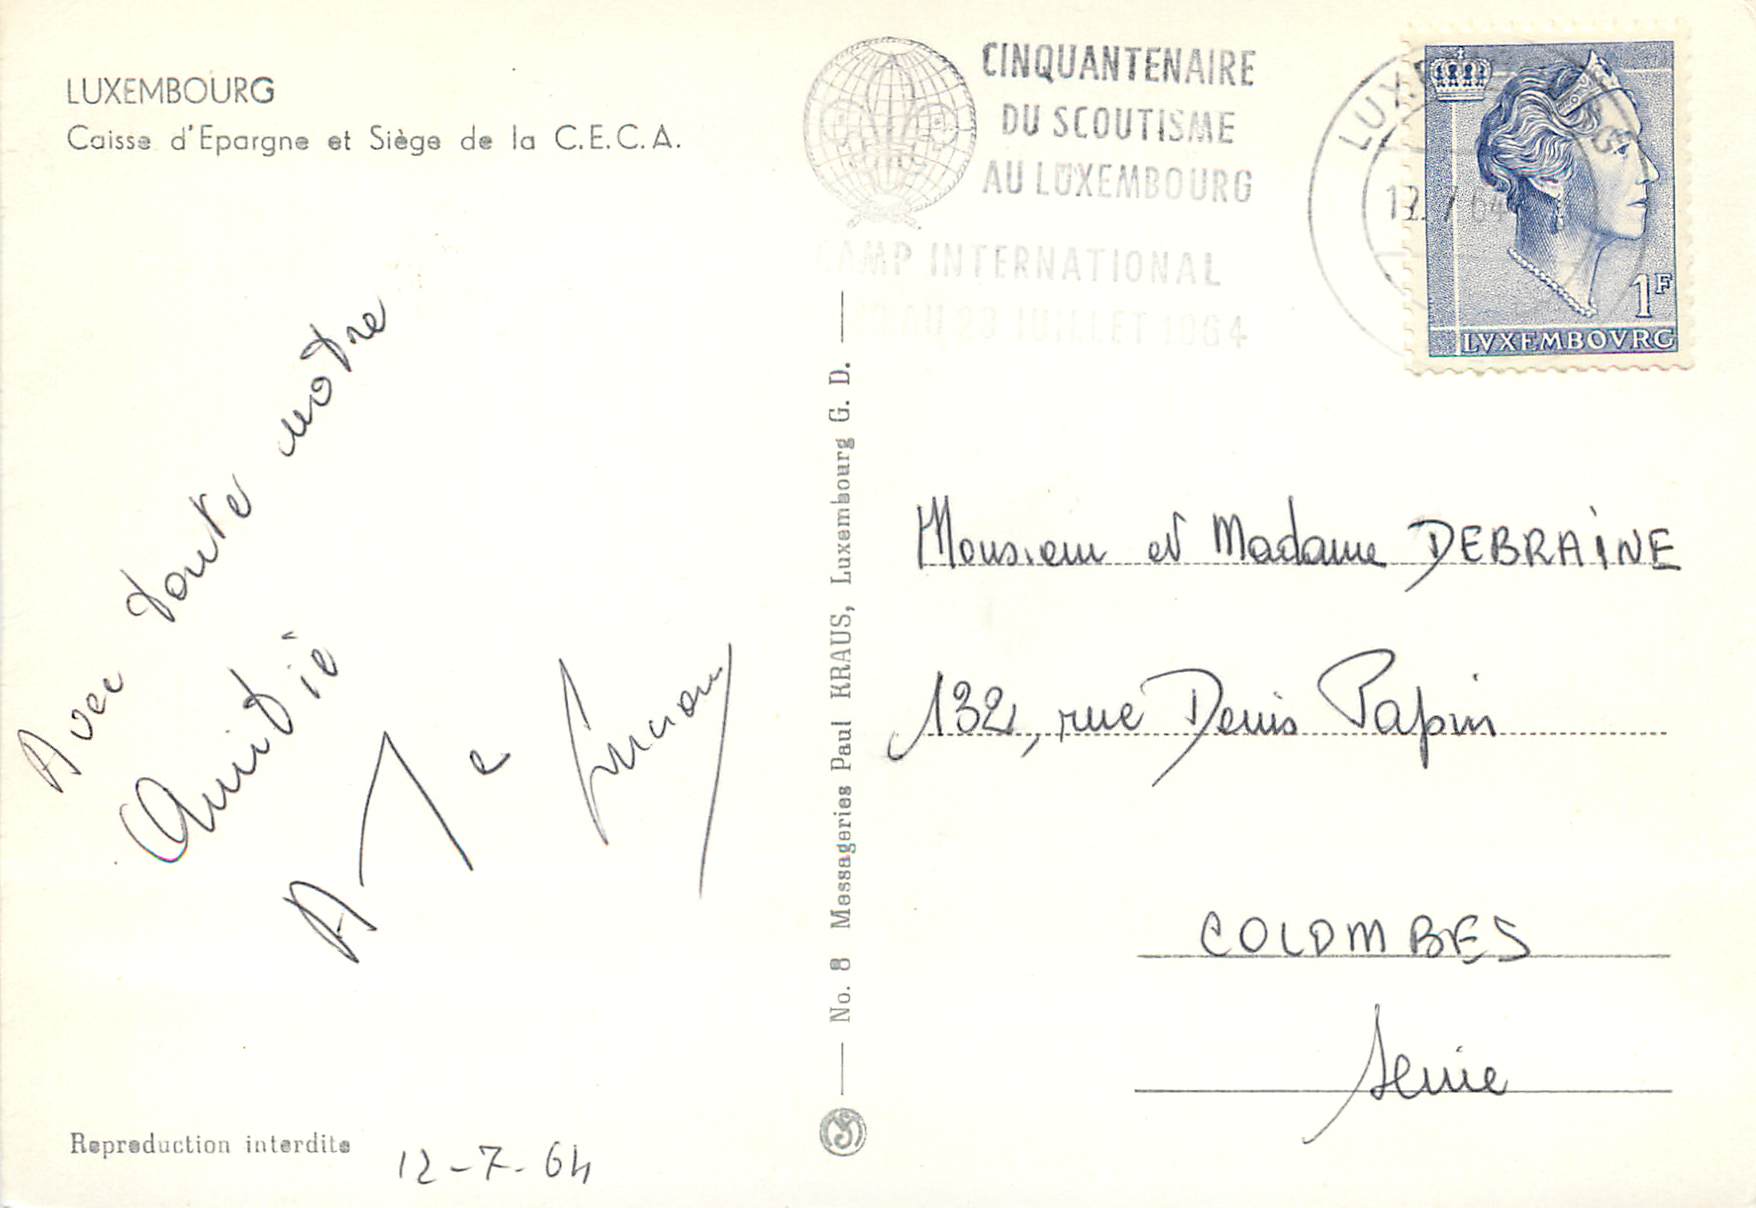 LUXEMBOURG
Caisse d'Epargne et Siège de la C.E.C.A.
CINQUANTENAIRE
DU SCOUTISME
AU LUXEMBOURG
CAMP INTERNATIONAL
AU 28 JUILLET 1964
12.7.64
1F
LVXEMBOVRG
Avec toute notre
Amitié
No. 8 Messageries Paul KRAUS, Luxembourg G. D.
Monsieur et Madame DEBRAINE
132, rue Denis Papin
COLOMBES
Seine
Reproduction interdite
12-7-64